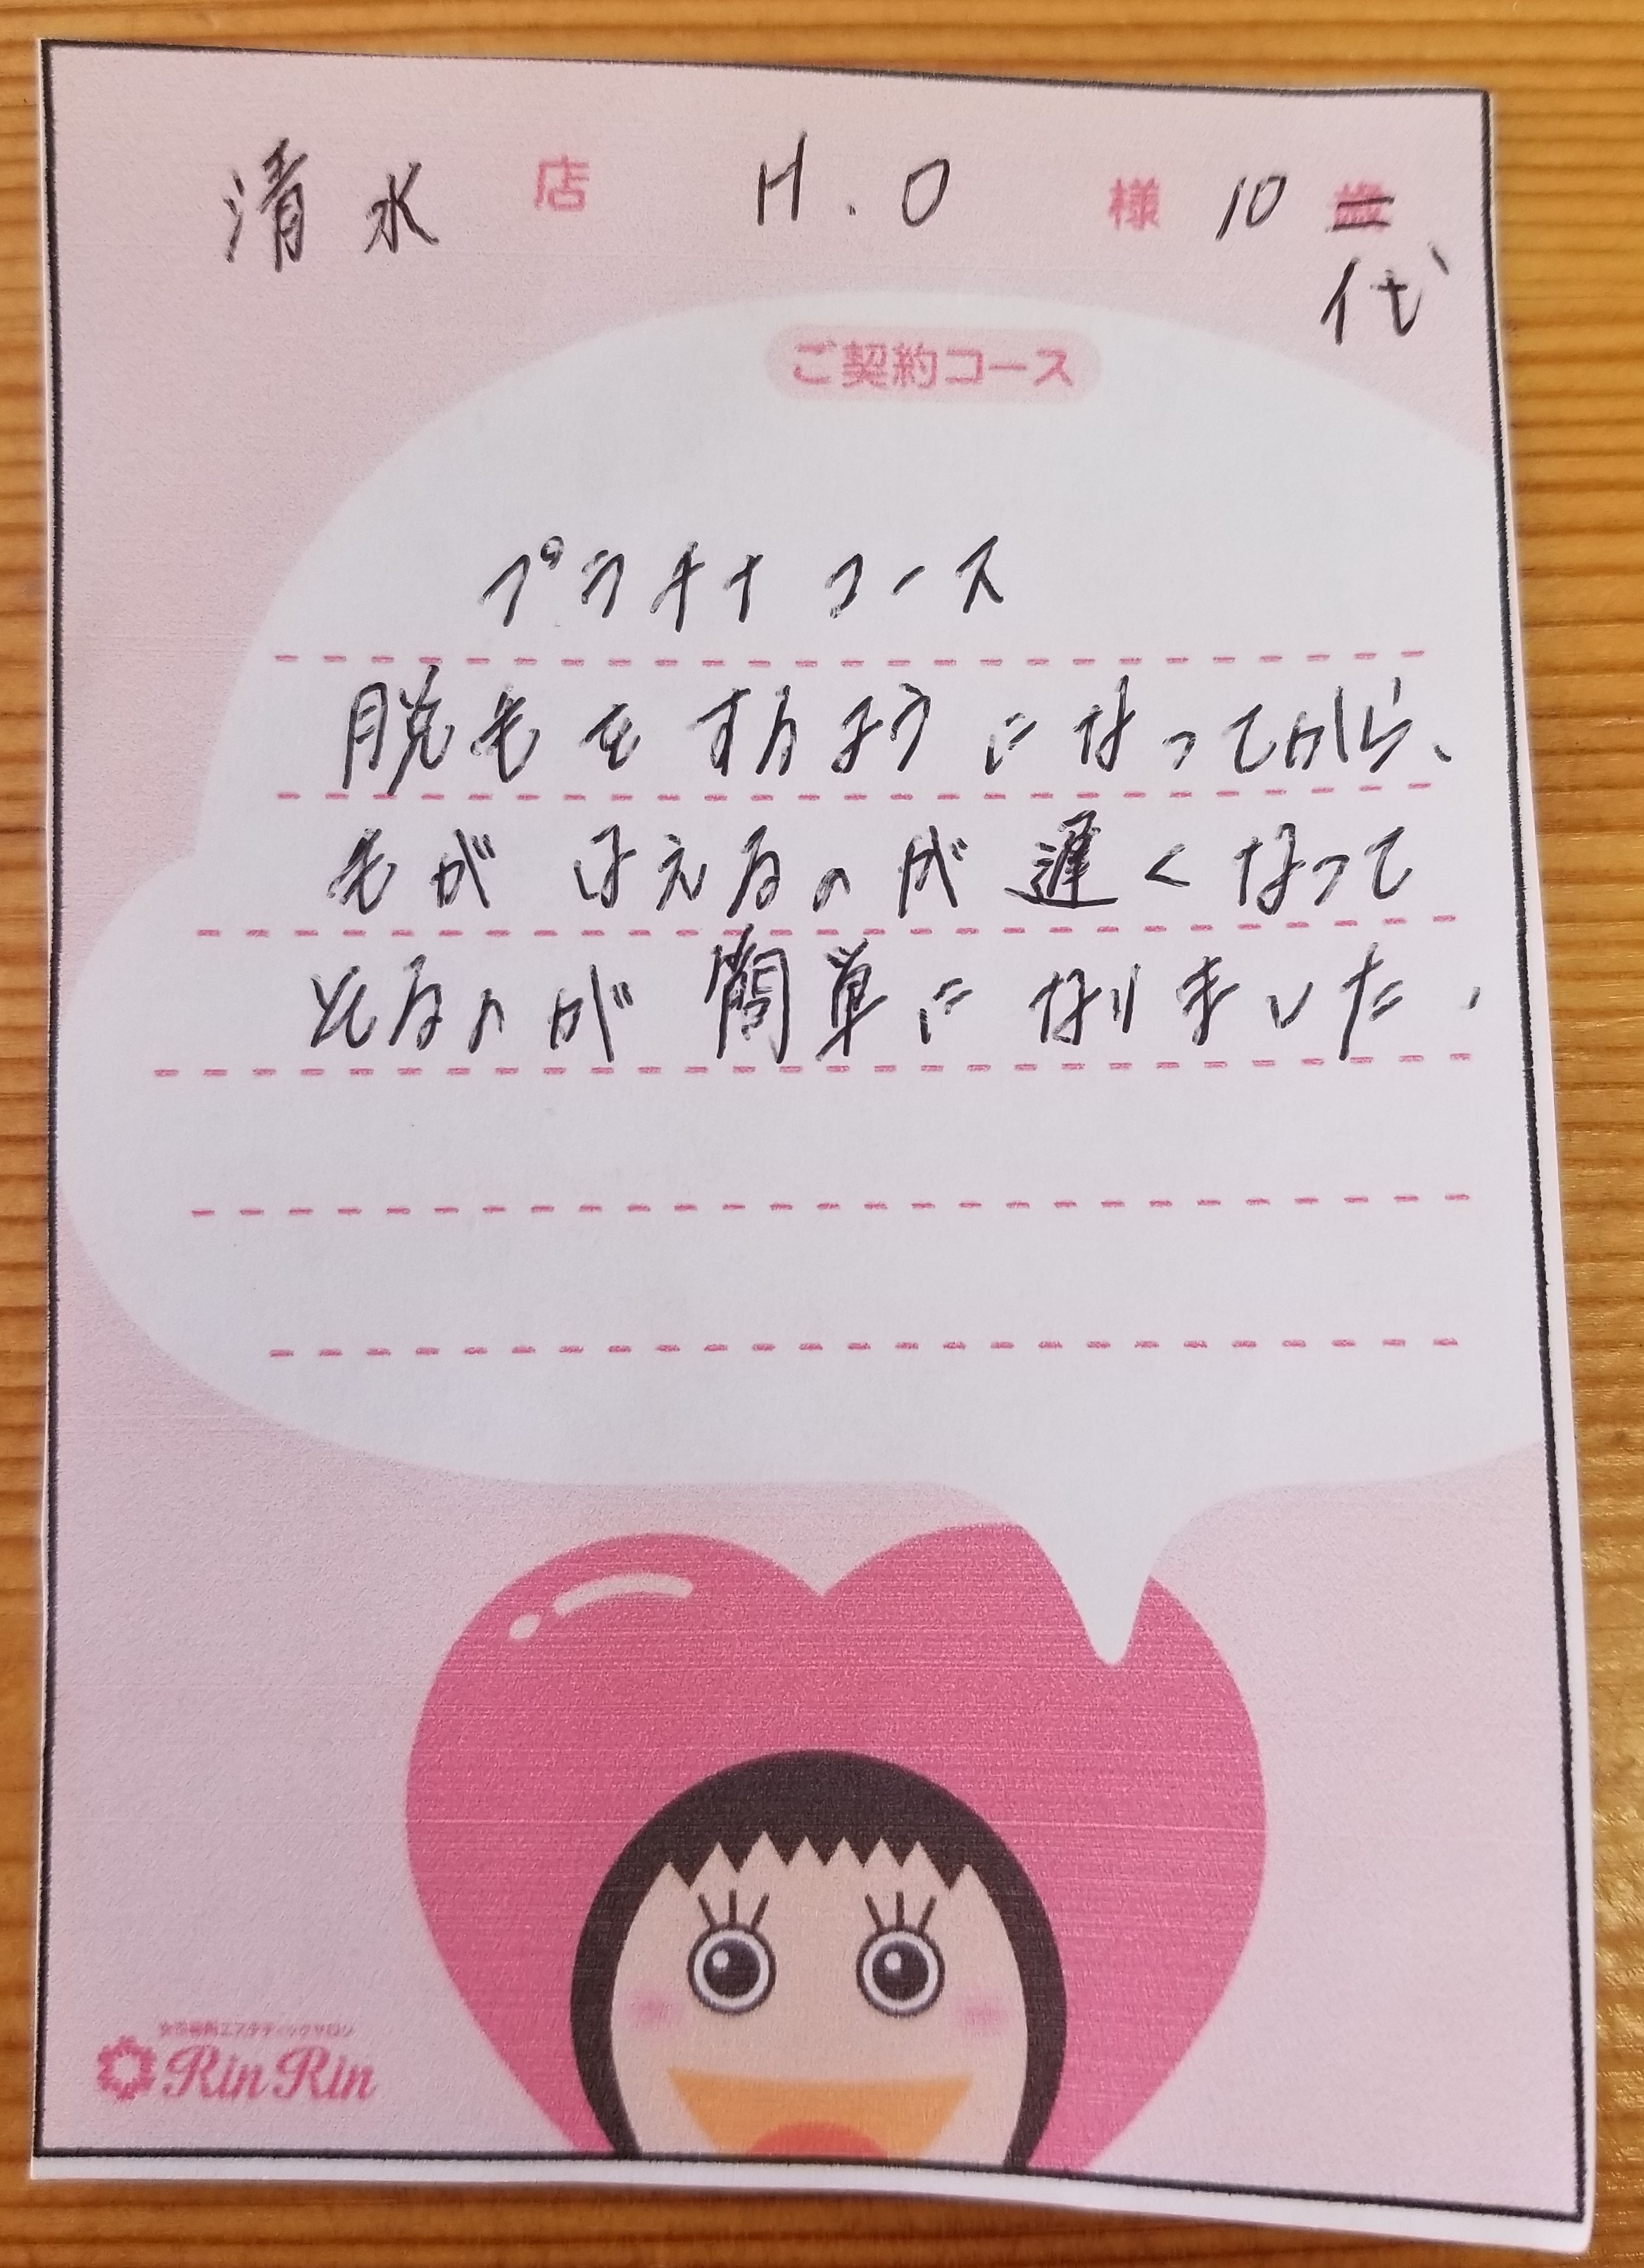 清水 店 H.O 様 10 歳
代
ご契約コース
プラチナコース
脱毛をするようになってから、
毛がはえるのが遅くなって
そるのが簡単になりました。
Rin Rin